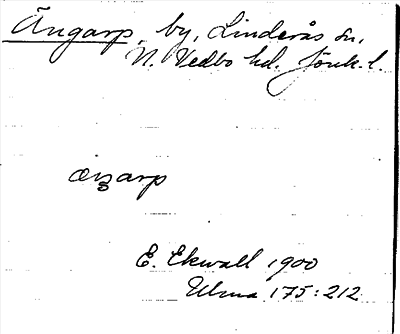 Ängarp, by, Linderås sn,
N. Vedbo hd. Jönk. l.
æŋarp
E. Ekwall 1900
Ulma 175:212